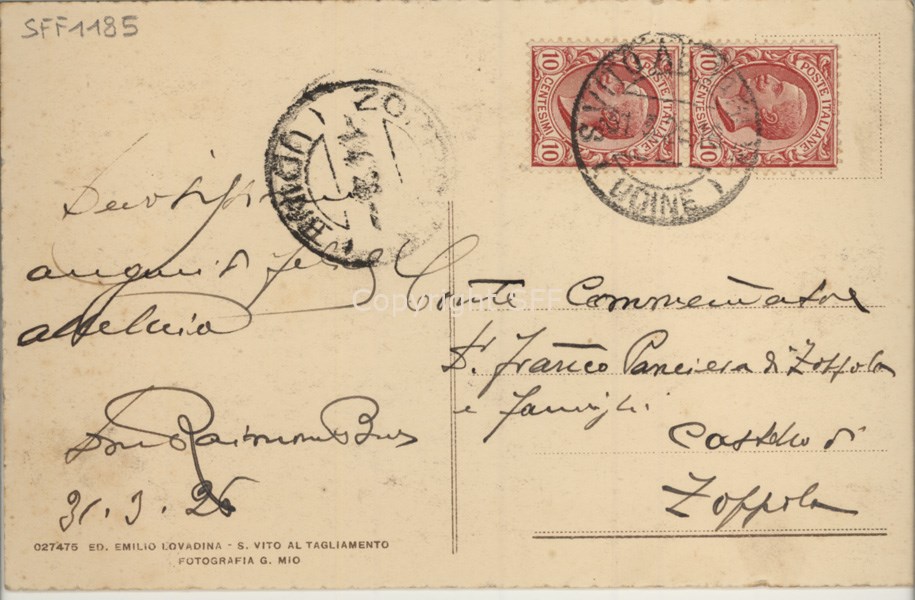 SFF1185
10 CENTESIMI 10
POSTE ITALIANE
10 CENTESIMI 10
POSTE ITALIANE
S. VITO AL
UDINE
ZOP
1.4.26
(UDINE)
auguri di
alleluia
Raimondo
31.3.26
Copyright SFF
Conte Commendatore
Dr. Franco Panciera di Zoppola
e famiglia
Castello di
Zoppola
027475 ED. EMILIO LOVADINA - S. VITO AL TAGLIAMENTO
FOTOGRAFIA G. MIO